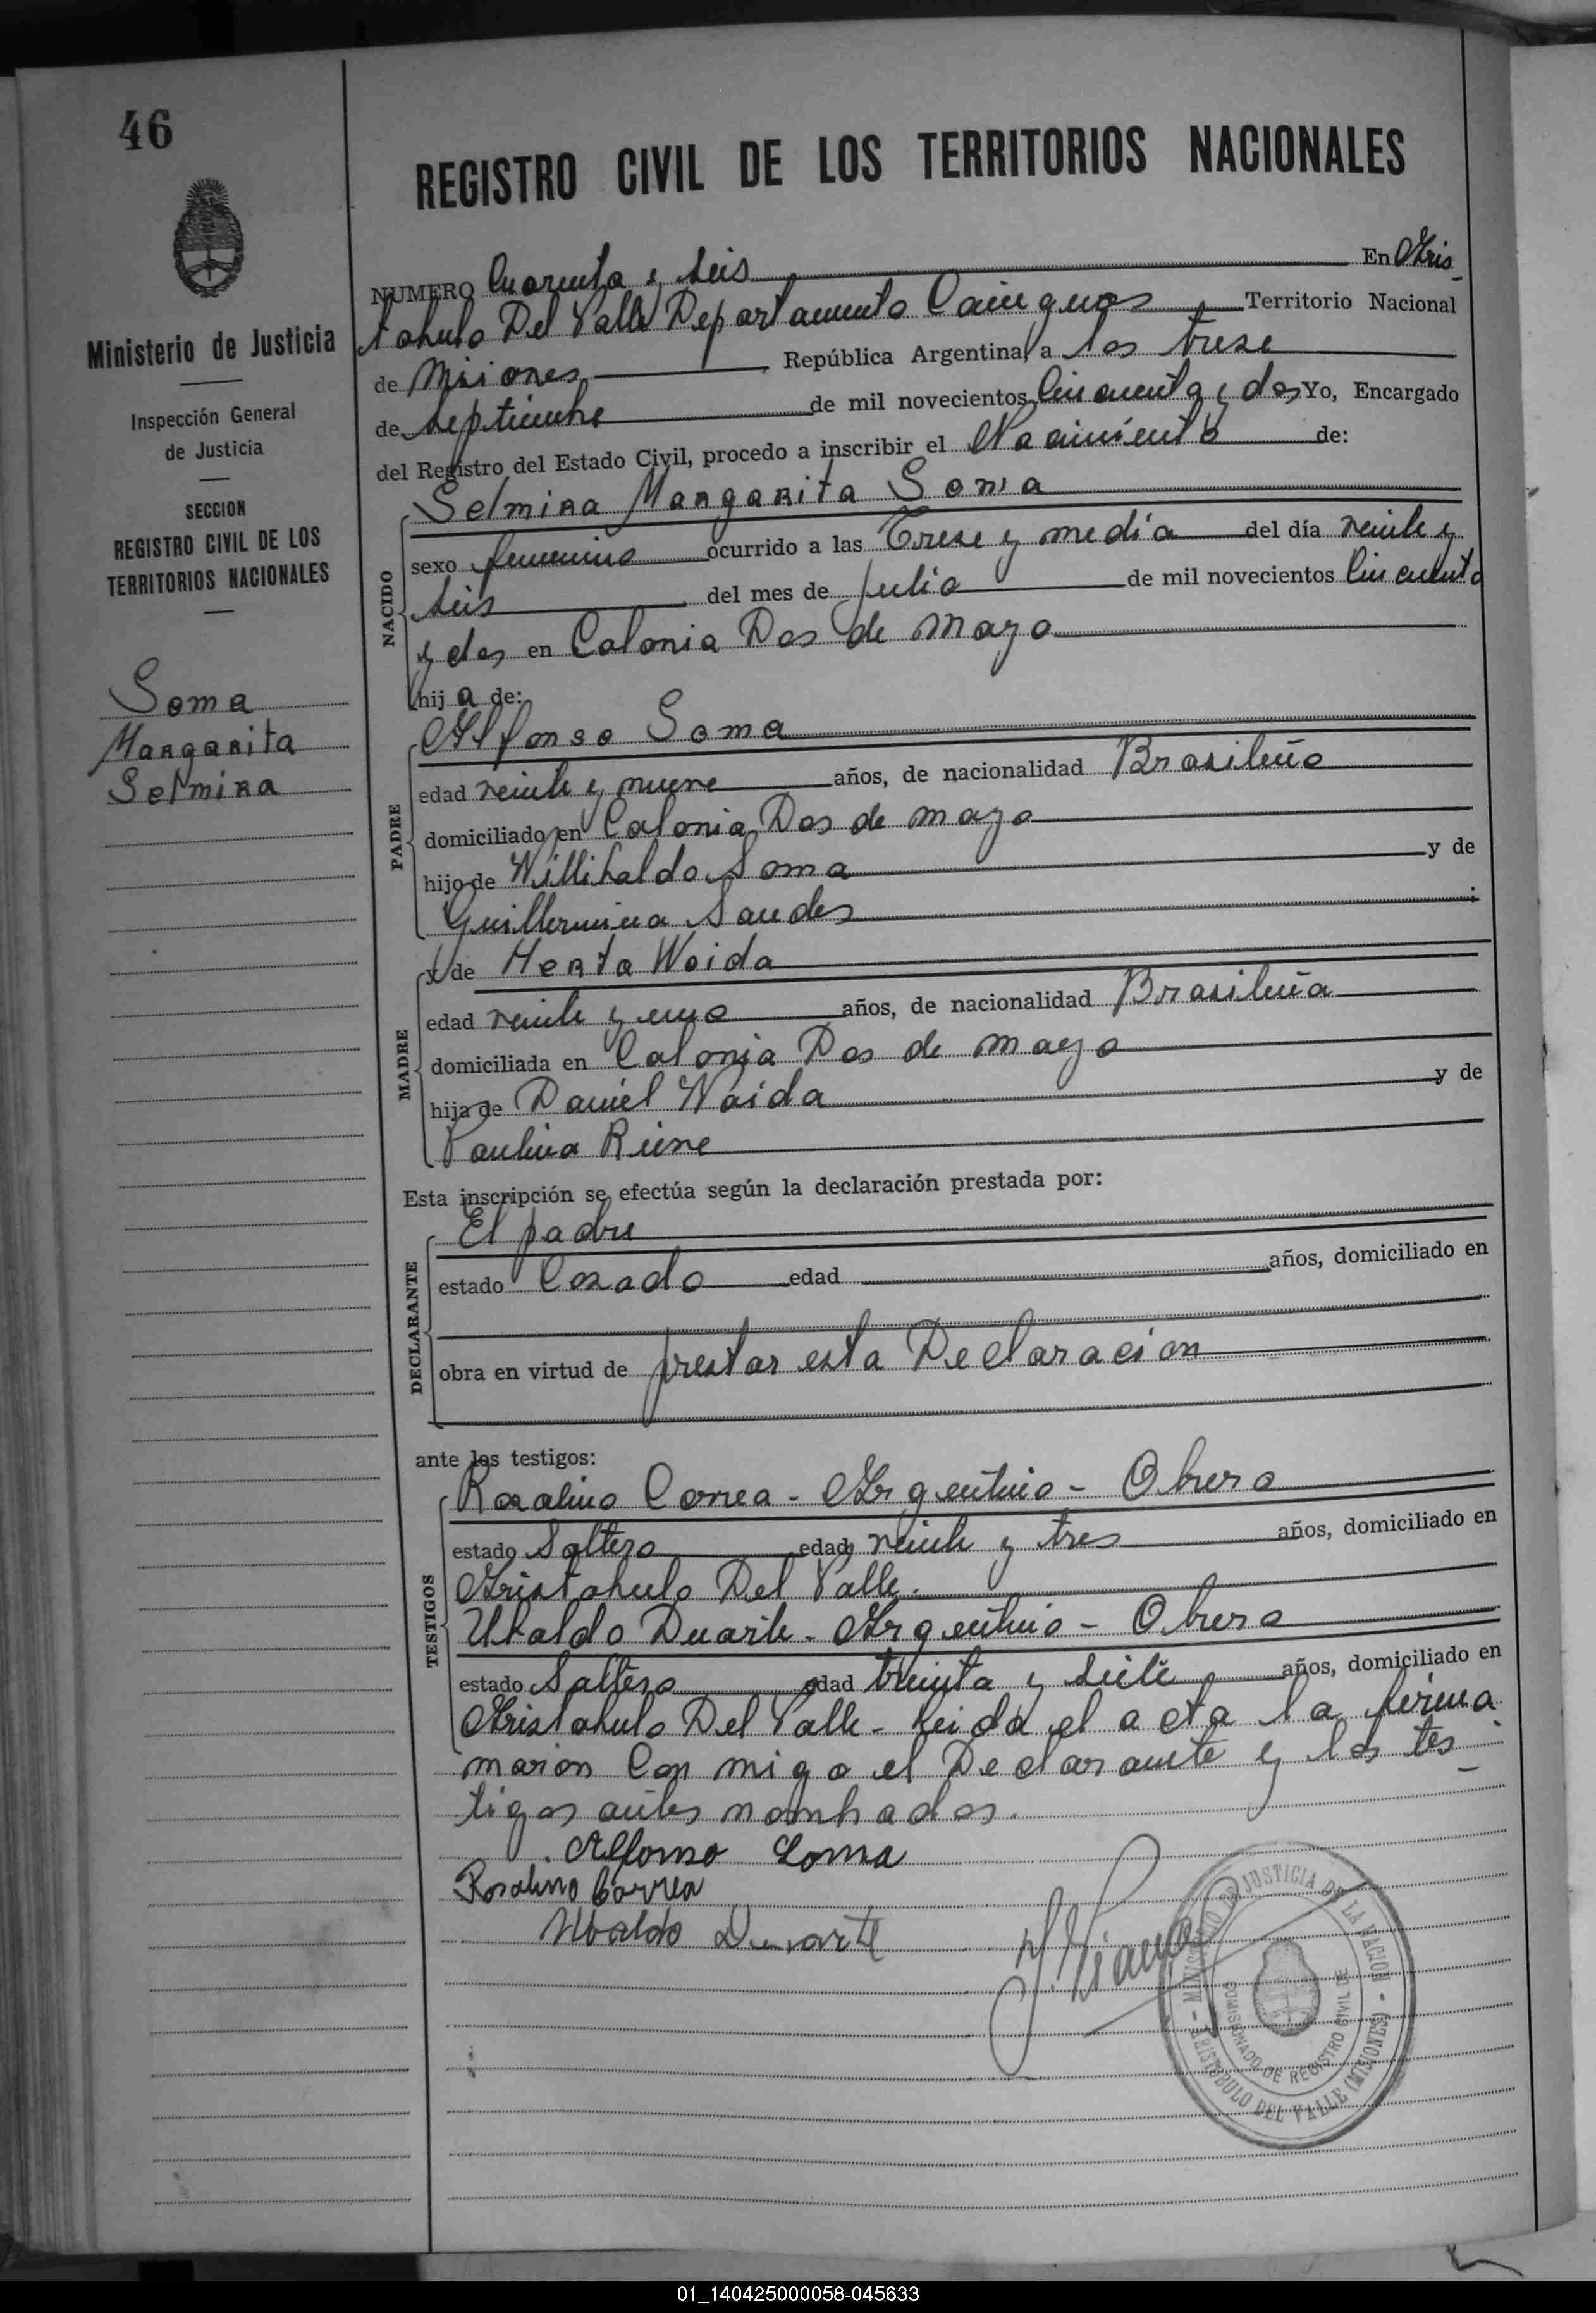 46
REGISTRO CIVIL DE LOS TERRITORIOS NACIONALES
Ministerio de Justicia
Inspección General
de Justicia
SECCION
REGISTRO CIVIL DE LOS
TERRITORIOS NACIONALES
Soma
Margarita
Selmira
NUMERO Cuarenta y seis En Aris-
tobulo Del Valle Departamento Cainguas Territorio Nacional
de Misiones, República Argentina, a los trese
de septiembre de mil novecientos Cincuenta y dos Yo, Encargado
del Registro del Estado Civil, procedo a inscribir el Nacimiento de:
NACIDO
Selmira Margarita Soma
sexo femenino ocurrido a las Trese y media del día veinte y
seis del mes de julio de mil novecientos Cincuenta
y dos en Colonia Dos de mayo
hij a de:
PADRE
Alfonso Soma
edad veinte y nueve años, de nacionalidad Brasileño
domiciliado en Colonia Dos de mayo
hijo de Willibaldo Soma y de
Guillermina Sandes ;
MADRE
y de Herta Woida
edad veinte y uno años, de nacionalidad Brasileña
domiciliada en Colonia Dos de mayo
hija de Daniel Woida y de
Paulina
Esta inscripción se efectúa según la declaración prestada por:
DECLARANTE
El padre
estado Casado edad años, domiciliado en
obra en virtud de prestar esta Declaracion
ante los testigos:
TESTIGOS
Rosalino Correa - Argentino - Obrero
estado Soltero edad veinte y tres años, domiciliado en
Aristobulo Del Valle.
Ubaldo Duarte - Argentino - Obrero
estado Soltero edad treinta y siete años, domiciliado en
Aristobulo Del Valle - Leida el acta la firma
maron Con migo el Declarante y los tes-
tigos antes nombados.
Alfonso Soma
Rosalino Correa
Ubaldo Duarte
MINISTERIO DE JUSTICIA DE LA NACION
COMISIONADO DE REGISTRO CIVIL DE
ARISTOBULO DEL VALLE (MISIONES)
01_140425000058-045633